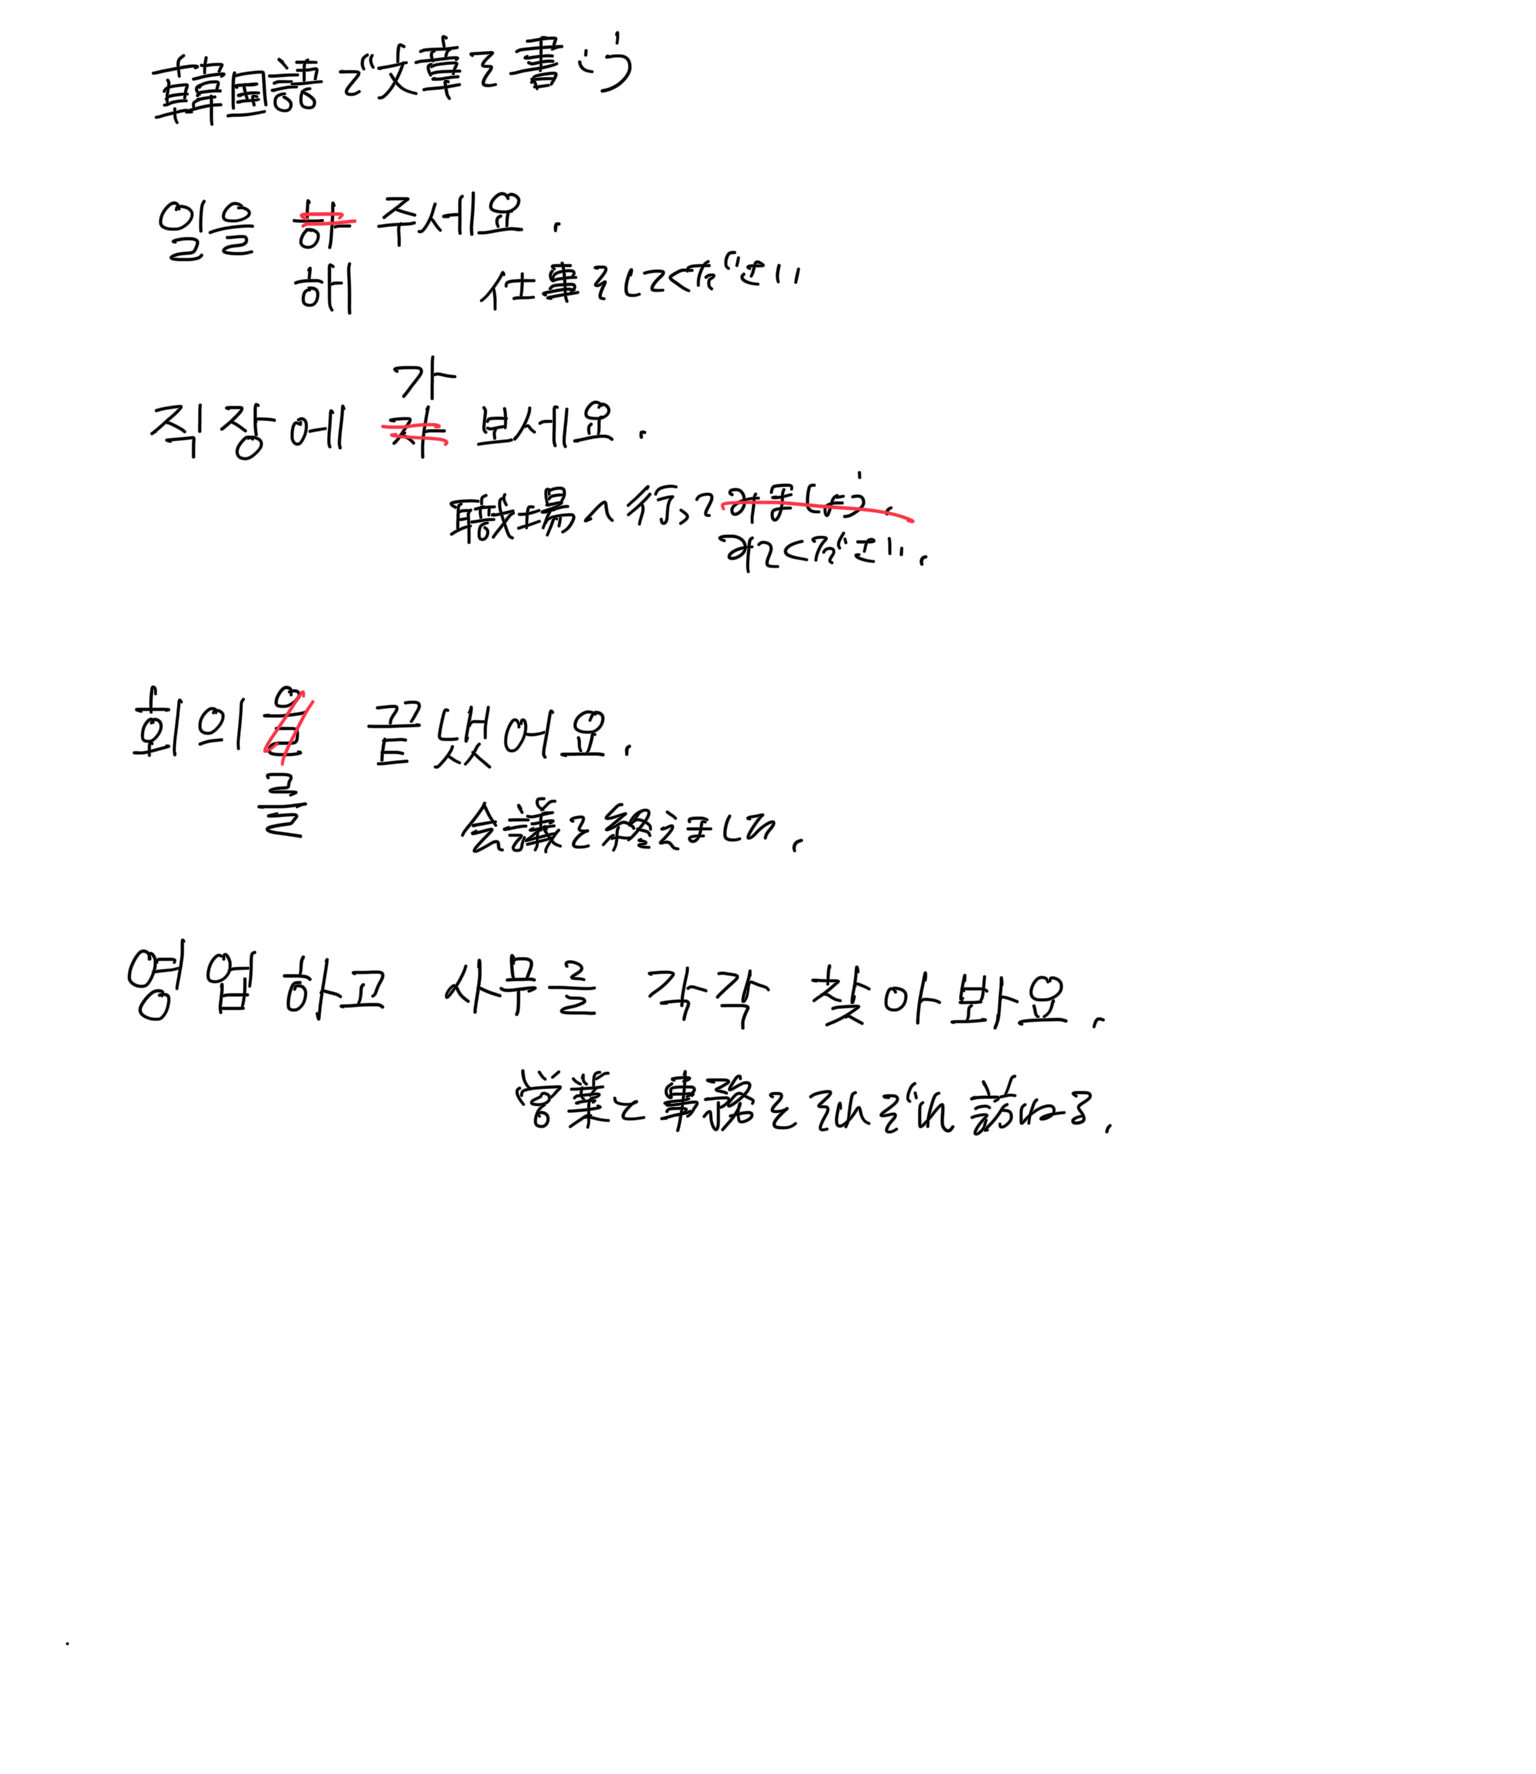 韓国語で文章を書こう
일을 하 주세요.
해
仕事をしてください
가
직장에 자 보세요.
職場へ行ってみましょう.
みてください.
회의을 끝냈어요.
를
会議を終えました.
영업하고 사무를 각각 찾아봐요.
営業と事務をそれぞれ訪ねる.